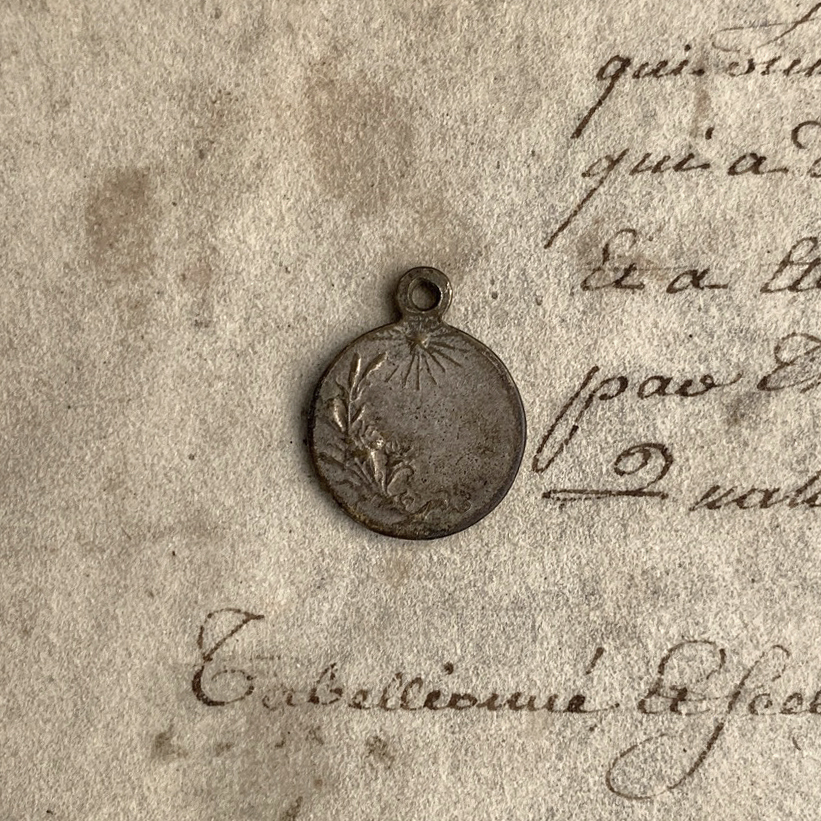 qui
qui a
Et a
par
Tabellionné Et Scel